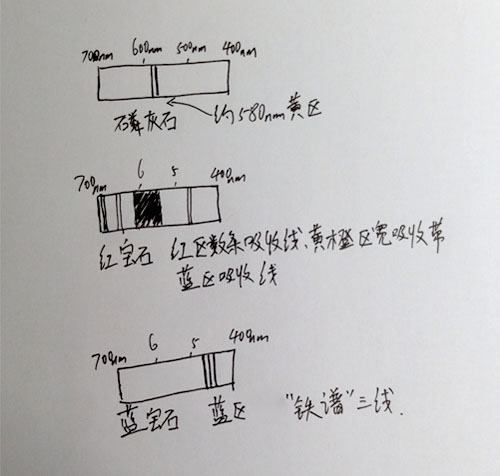 700nm 600nm 500nm 400nm
磷灰石 约580nm黄区
700nm 6 5 400nm
红宝石 红区数条吸收线、黄橙区宽吸收带
蓝区吸收线
700nm 6 5 400nm
蓝宝石 蓝区 "铁谱"三线.